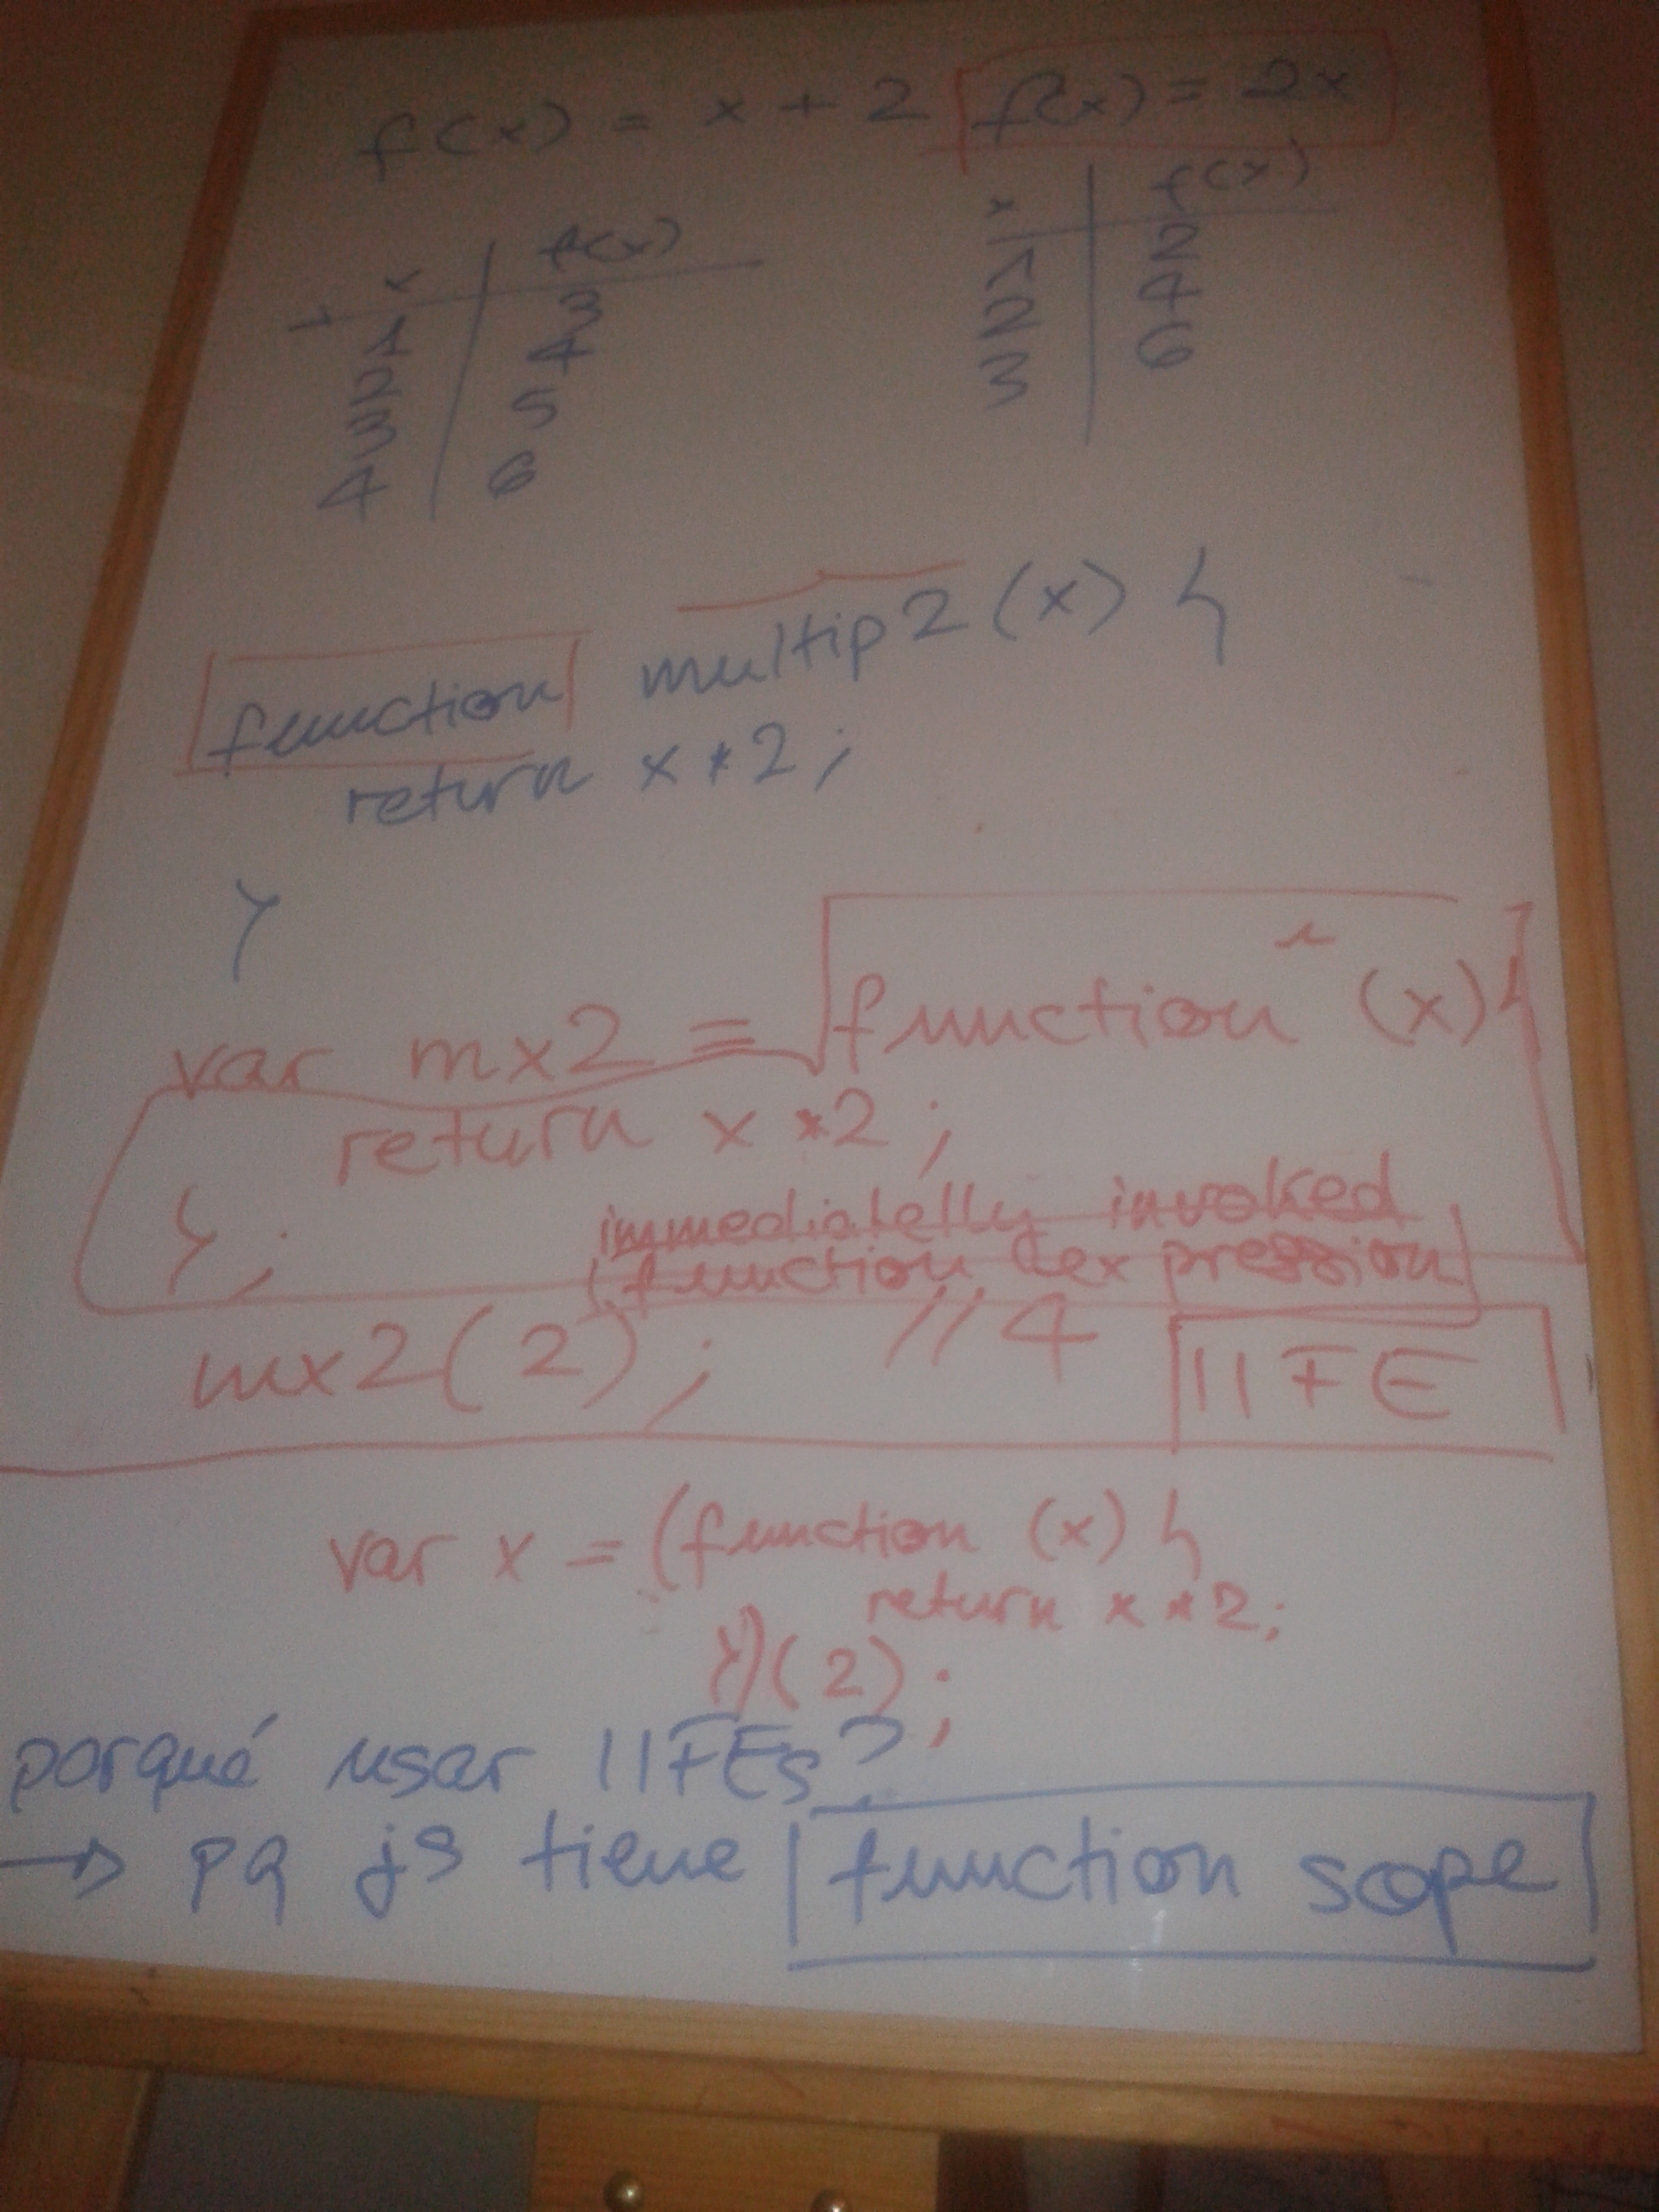 f(x) = x + 2 f(x) = 2x
x f(x)
1 3
2 4
3 5
4 6
x f(x)
1 2
2 4
3 6
function multip2(x) {
return x * 2;
}
var mx2 = function (x) {
return x * 2;
};
immediatelly invoked
function expression
mx2(2); // 4 IIFE
var x = (function (x) {
return x * 2;
})(2);
porqué usar IIFEs?
→ pq js tiene function scope